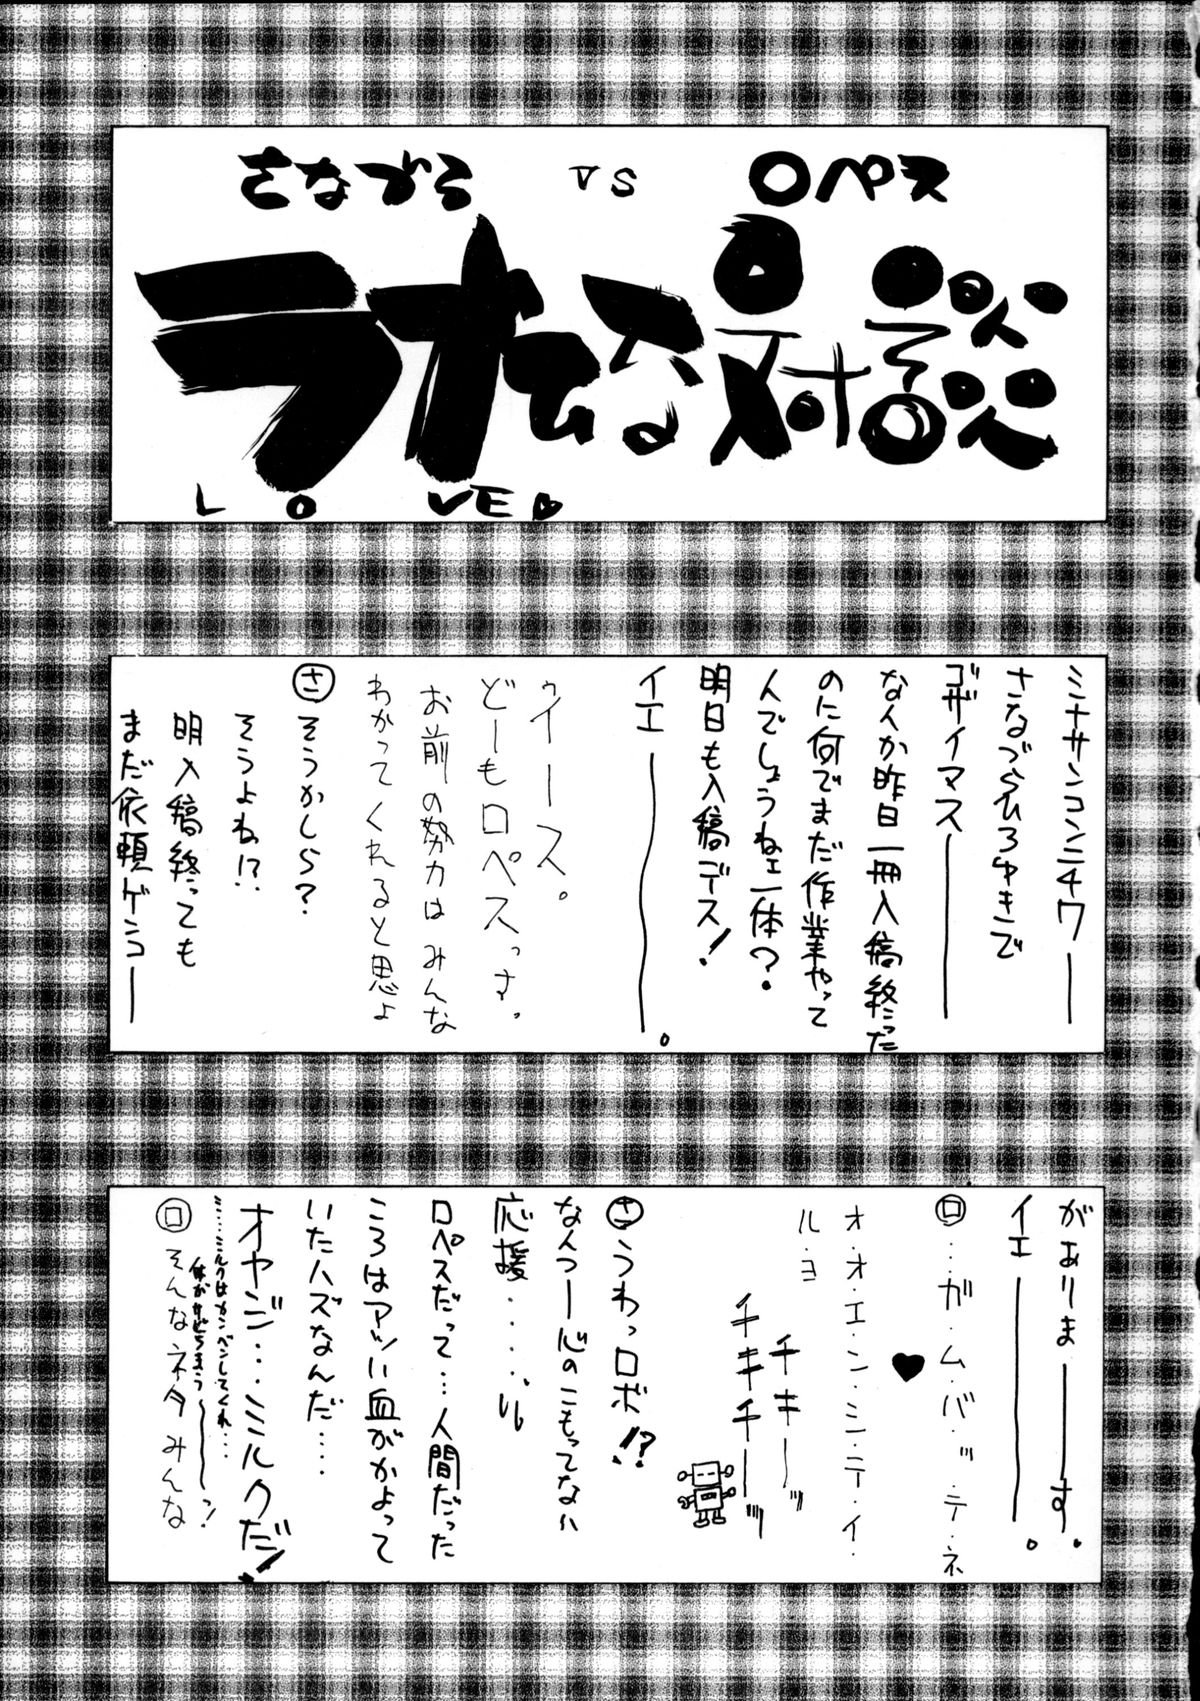 さなづら VS ロペス
ラオむな対談
LOVE
ミナサンコンニチワー
さなづらひろゆきで
ゴザイマスー
なんか昨日一冊入稿終った
のに何でまだ作業やって
んでしょうねェ一体?
明日も入稿デス!
イエー。
ゥイース。
どーもロペスっす。
お前の努力はみんな
わかってくれると思よ
さ そうかしら?
そうよね!?
明入稿終っても
まだ依頼ゲンコー
がありまーす。
イエー。
ロ …ガ・ム・バ・ッ・テ・ネ
♥
オ・オ・エ・ン・シ・テ・イ・
ル・ヨ
チキーッ
チキチーッ
さ うわっロボ!?
なんつー心のこもってない
応援……
ロペスだって…人間だった
ころはアツい血がかよって
いたハズなんだ……
オヤジ…ミルクだ!
ミ……ミルクはカンベンしてくれ…
体がサビちまうーっ!
ロ そんなネタみんな